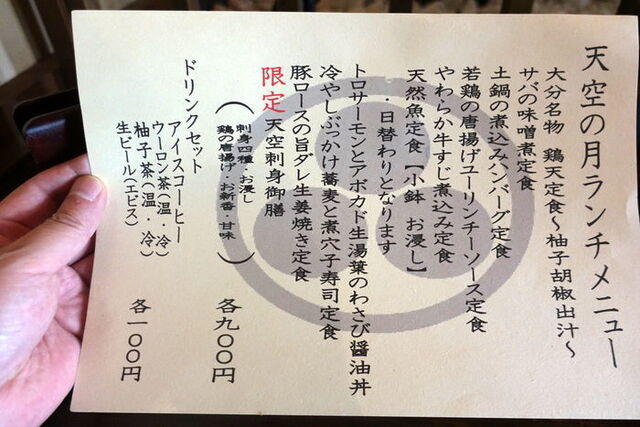 天空の月ランチメニュー
大分名物 鶏天定食～柚子胡椒出汁～
サバの味噌煮定食
土鍋の煮込みハンバーグ定食
若鶏の唐揚げユーリンチーソース定食
やわらか牛すじ煮込み定食
天然魚定食【小鉢 お浸し】
・日替わりとなります
トロサーモンとアボカド生湯葉のわさび醤油丼
冷やしぶっかけ蕎麦と煮穴子寿司定食
豚ロースの旨ダレ生姜焼き定食
限定 天空刺身御膳
（刺身四種・お浸し
鶏の唐揚げ・お新香・甘味）
各九〇〇円
ドリンクセット
アイスコーヒー
ウーロン茶（温・冷）
柚子茶（温・冷）
生ビール（エビス）
各一〇〇円